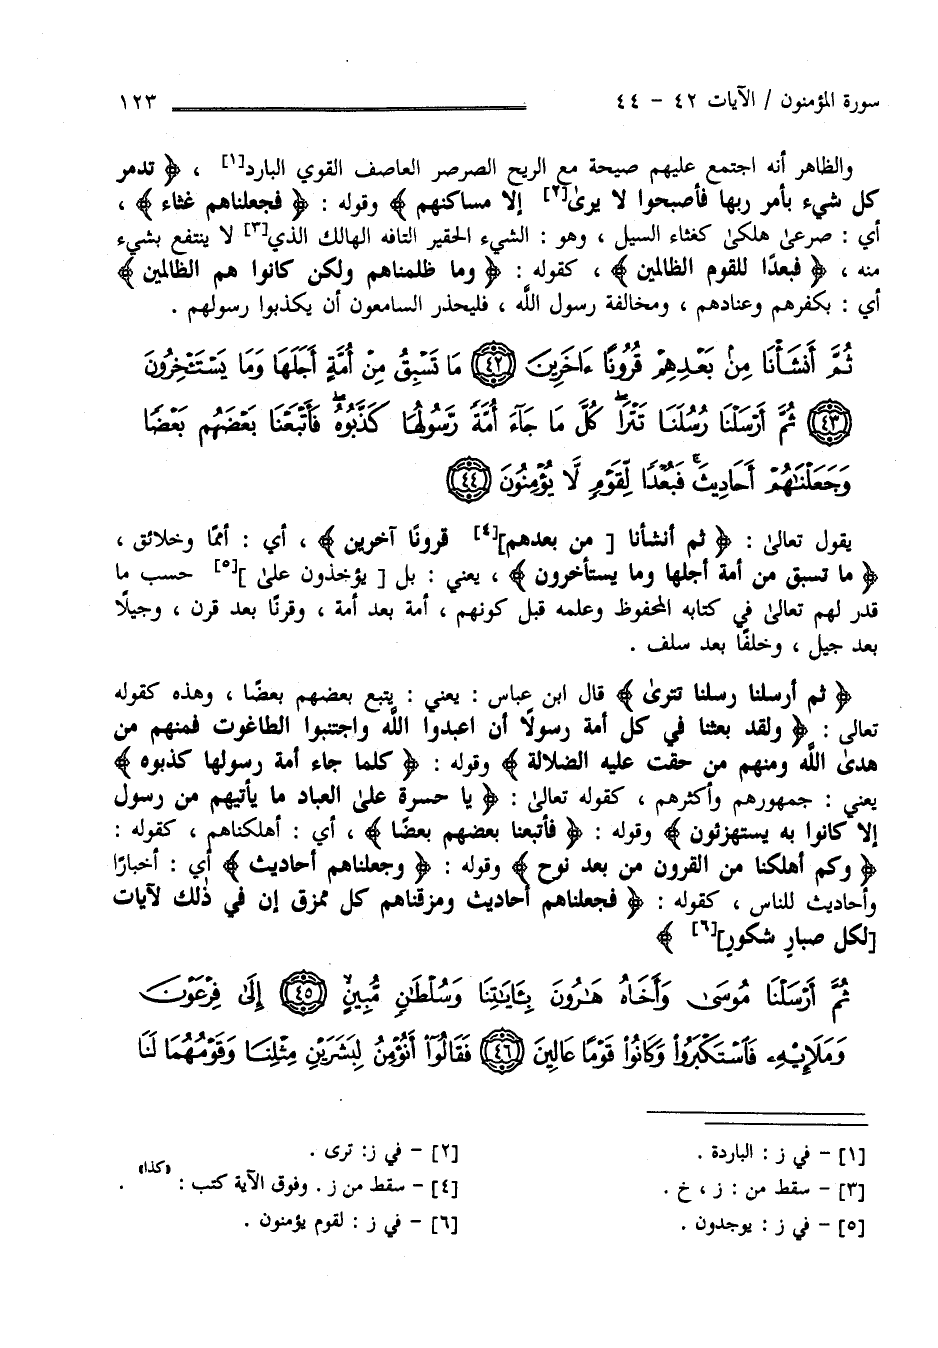 سورة المؤمنون / الآيات ٤٢ - ٤٤ ١٢٣
والظاهر أنه اجتمع عليهم صيحة مع الريح الصرصر العاصف القوي البارد[١] ، ﴿ تدمر
كل شيء بأمر ربها فأصبحوا لا يرىٰ[٢] إلا مساكنهم ﴾ وقوله : ﴿ فجعلناهم غثاء ﴾ ،
أي : صرعىٰ هلكىٰ كغثاء السيل ، وهو : الشيء الحقير التافه الهالك الذي[٣] لا ينتفع بشيء
منه ، ﴿ فبعدًا للقوم الظالمين ﴾ ، كقوله : ﴿ وما ظلمناهم ولكن كانوا هم الظالمين ﴾
أي : بكفرهم وعنادهم ، ومخالفة رسول اللَّه ، فليحذر السامعون أن يكذبوا رسولهم .
ثُمَّ أَنشَأْنَا مِنۢ بَعْدِهِمْ قُرُونًا ءَاخَرِينَ ﴿٤٢﴾ مَا تَسْبِقُ مِنْ أُمَّةٍ أَجَلَهَا وَمَا يَسْتَـْٔخِرُونَ
﴿٤٣﴾ ثُمَّ أَرْسَلْنَا رُسُلَنَا تَتْرَاۖ كُلَّ مَا جَآءَ أُمَّةً رَّسُولُهَا كَذَّبُوهُۖ فَأَتْبَعْنَا بَعْضَهُم بَعْضًا
وَجَعَلْنَٰهُمْ أَحَادِيثَۚ فَبُعْدًا لِّقَوْمٍ لَّا يُؤْمِنُونَ ﴿٤٤﴾
يقول تعالىٰ : ﴿ ثم أنشأنا [ من بعدهم][٤] قرونًا آخرين ﴾ ، أي : أممًا وخلائق ،
﴿ ما تسبق من أمة أجلها وما يستأخرون ﴾ ، يعني : بل [ يؤخذون علىٰ ][٥] حسب ما
قدر لهم تعالىٰ في كتابه المحفوظ وعلمه قبل كونهم ، أمة بعد أمة ، وقرنًا بعد قرن ، وجيلًا
بعد جيل ، وخلفًا بعد سلف .
﴿ ثم أرسلنا رسلنا تترىٰ ﴾ قال ابن عباس : يعني : يتبع بعضهم بعضًا ، وهذه كقوله
تعالى : ﴿ ولقد بعثنا في كل أمة رسولًا أن اعبدوا اللَّه واجتنبوا الطاغوت فمنهم من
هدىٰ اللَّه ومنهم من حقت عليه الضلالة ﴾ وقوله : ﴿ كلما جاء أمة رسولها كذبوه ﴾
يعني : جمهورهم وأكثرهم ، كقوله تعالىٰ : ﴿ يا حسرة علىٰ العباد ما يأتيهم من رسول
إلا كانوا به يستهزئون ﴾ وقوله : ﴿ فأتبعنا بعضهم بعضًا ﴾ ، أي : أهلكناهم ، كقوله :
﴿ وكم أهلكنا من القرون من بعد نوح ﴾ وقوله : ﴿ وجعلناهم أحاديث ﴾ أي : أخبارًا
وأحاديث للناس ، كقوله : ﴿ فجعلناهم أحاديث ومزقناهم كل ممزق إن في ذٰلك لآيات
[لكل صبارٍ شكورٍ][٦] ﴾
ثُمَّ أَرْسَلْنَا مُوسَىٰ وَأَخَاهُ هَٰرُونَ بِـَٔايَٰتِنَا وَسُلْطَٰنٍ مُّبِينٍ ﴿٤٥﴾ إِلَىٰ فِرْعَوْنَ
وَمَلَإِي۟هِۦ فَٱسْتَكْبَرُوا۟ وَكَانُوا۟ قَوْمًا عَالِينَ ﴿٤٦﴾ فَقَالُوٓا۟ أَنُؤْمِنُ لِبَشَرَيْنِ مِثْلِنَا وَقَوْمُهُمَا لَنَا
[١] - في ز : الباردة . [٢] - في ز: ترى .
[٣] - سقط من : ز ، خ . [٤] - سقط من ز . وفوق الآية كتب : «كذا» .
[٥] - في ز : يوجدون . [٦] - في ز : لقوم يؤمنون .